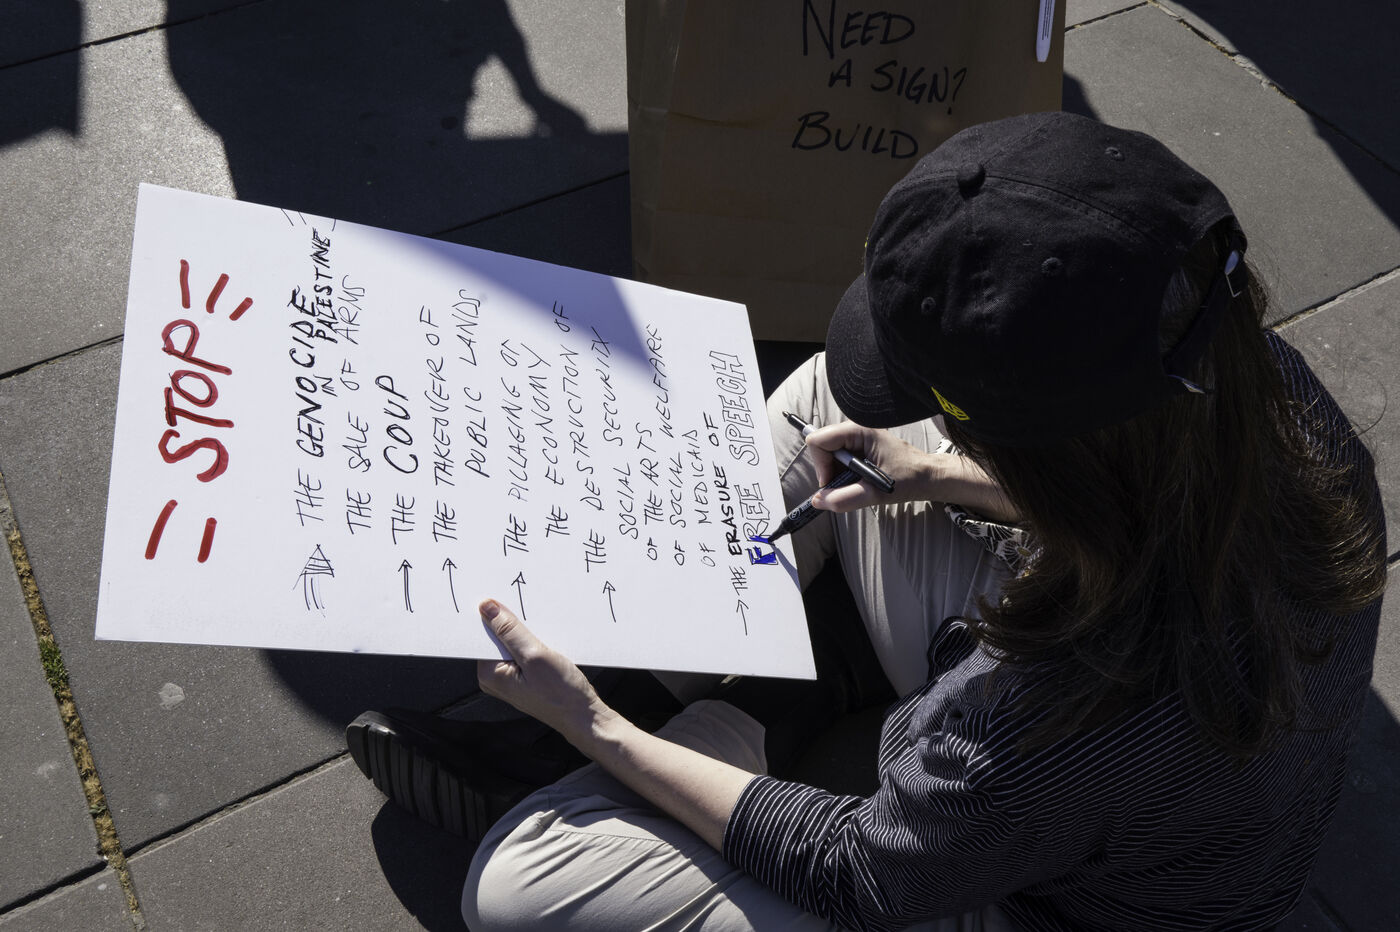 NEED
A SIGN?
BUILD
STOP
THE GENOCIDE
IN PALESTINE
THE SALE OF ARMS
THE COUP
THE TAKEOVER OF
PUBLIC LANDS
THE PILLAGING OF
THE ECONOMY
THE DESTRUCTION OF
SOCIAL SECURITY
OF THE ARTS
OF SOCIAL WELFARE
OF MEDICAID
THE ERASURE OF
FREE SPEECH